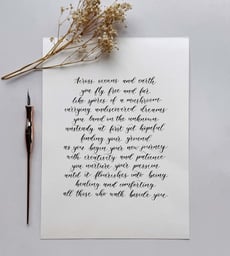 Across oceans and earth,
you fly free and far
like spores of a mushroom
carrying undiscovered dreams
you land in the unknown
unsteady at first yet hopeful
finding your ground
as you begin your new journey
with creativity and patience
you nurture your passion
until it flourishes into being
healing and comforting
all those who walk beside you.